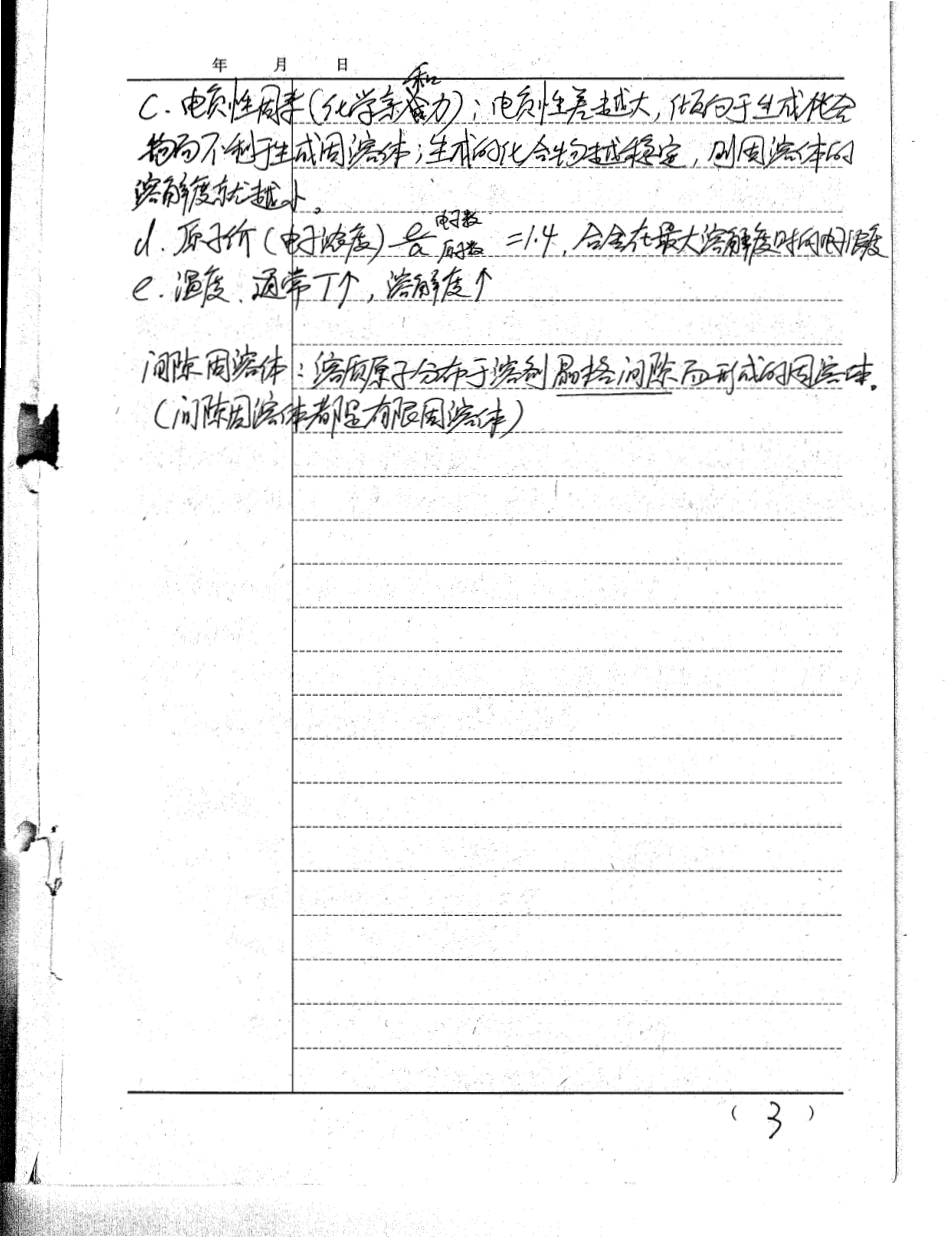 年 月 日
c. 电负性因素(化学亲和力);电负性差越大,倾向于生成化合
物而不利于生成固溶体;生成的化合物越稳定,则固溶体的
溶解度就越小。
d. 原子价(电子浓度) e/a 电子数/原子数 =1.4,合金在最大溶解度时的
e. 温度、通常T↑,溶解度↑
间隙固溶体:溶质原子分布于溶剂晶格间隙而形成的固溶体。
(间隙固溶体都是有限固溶体)
(3)